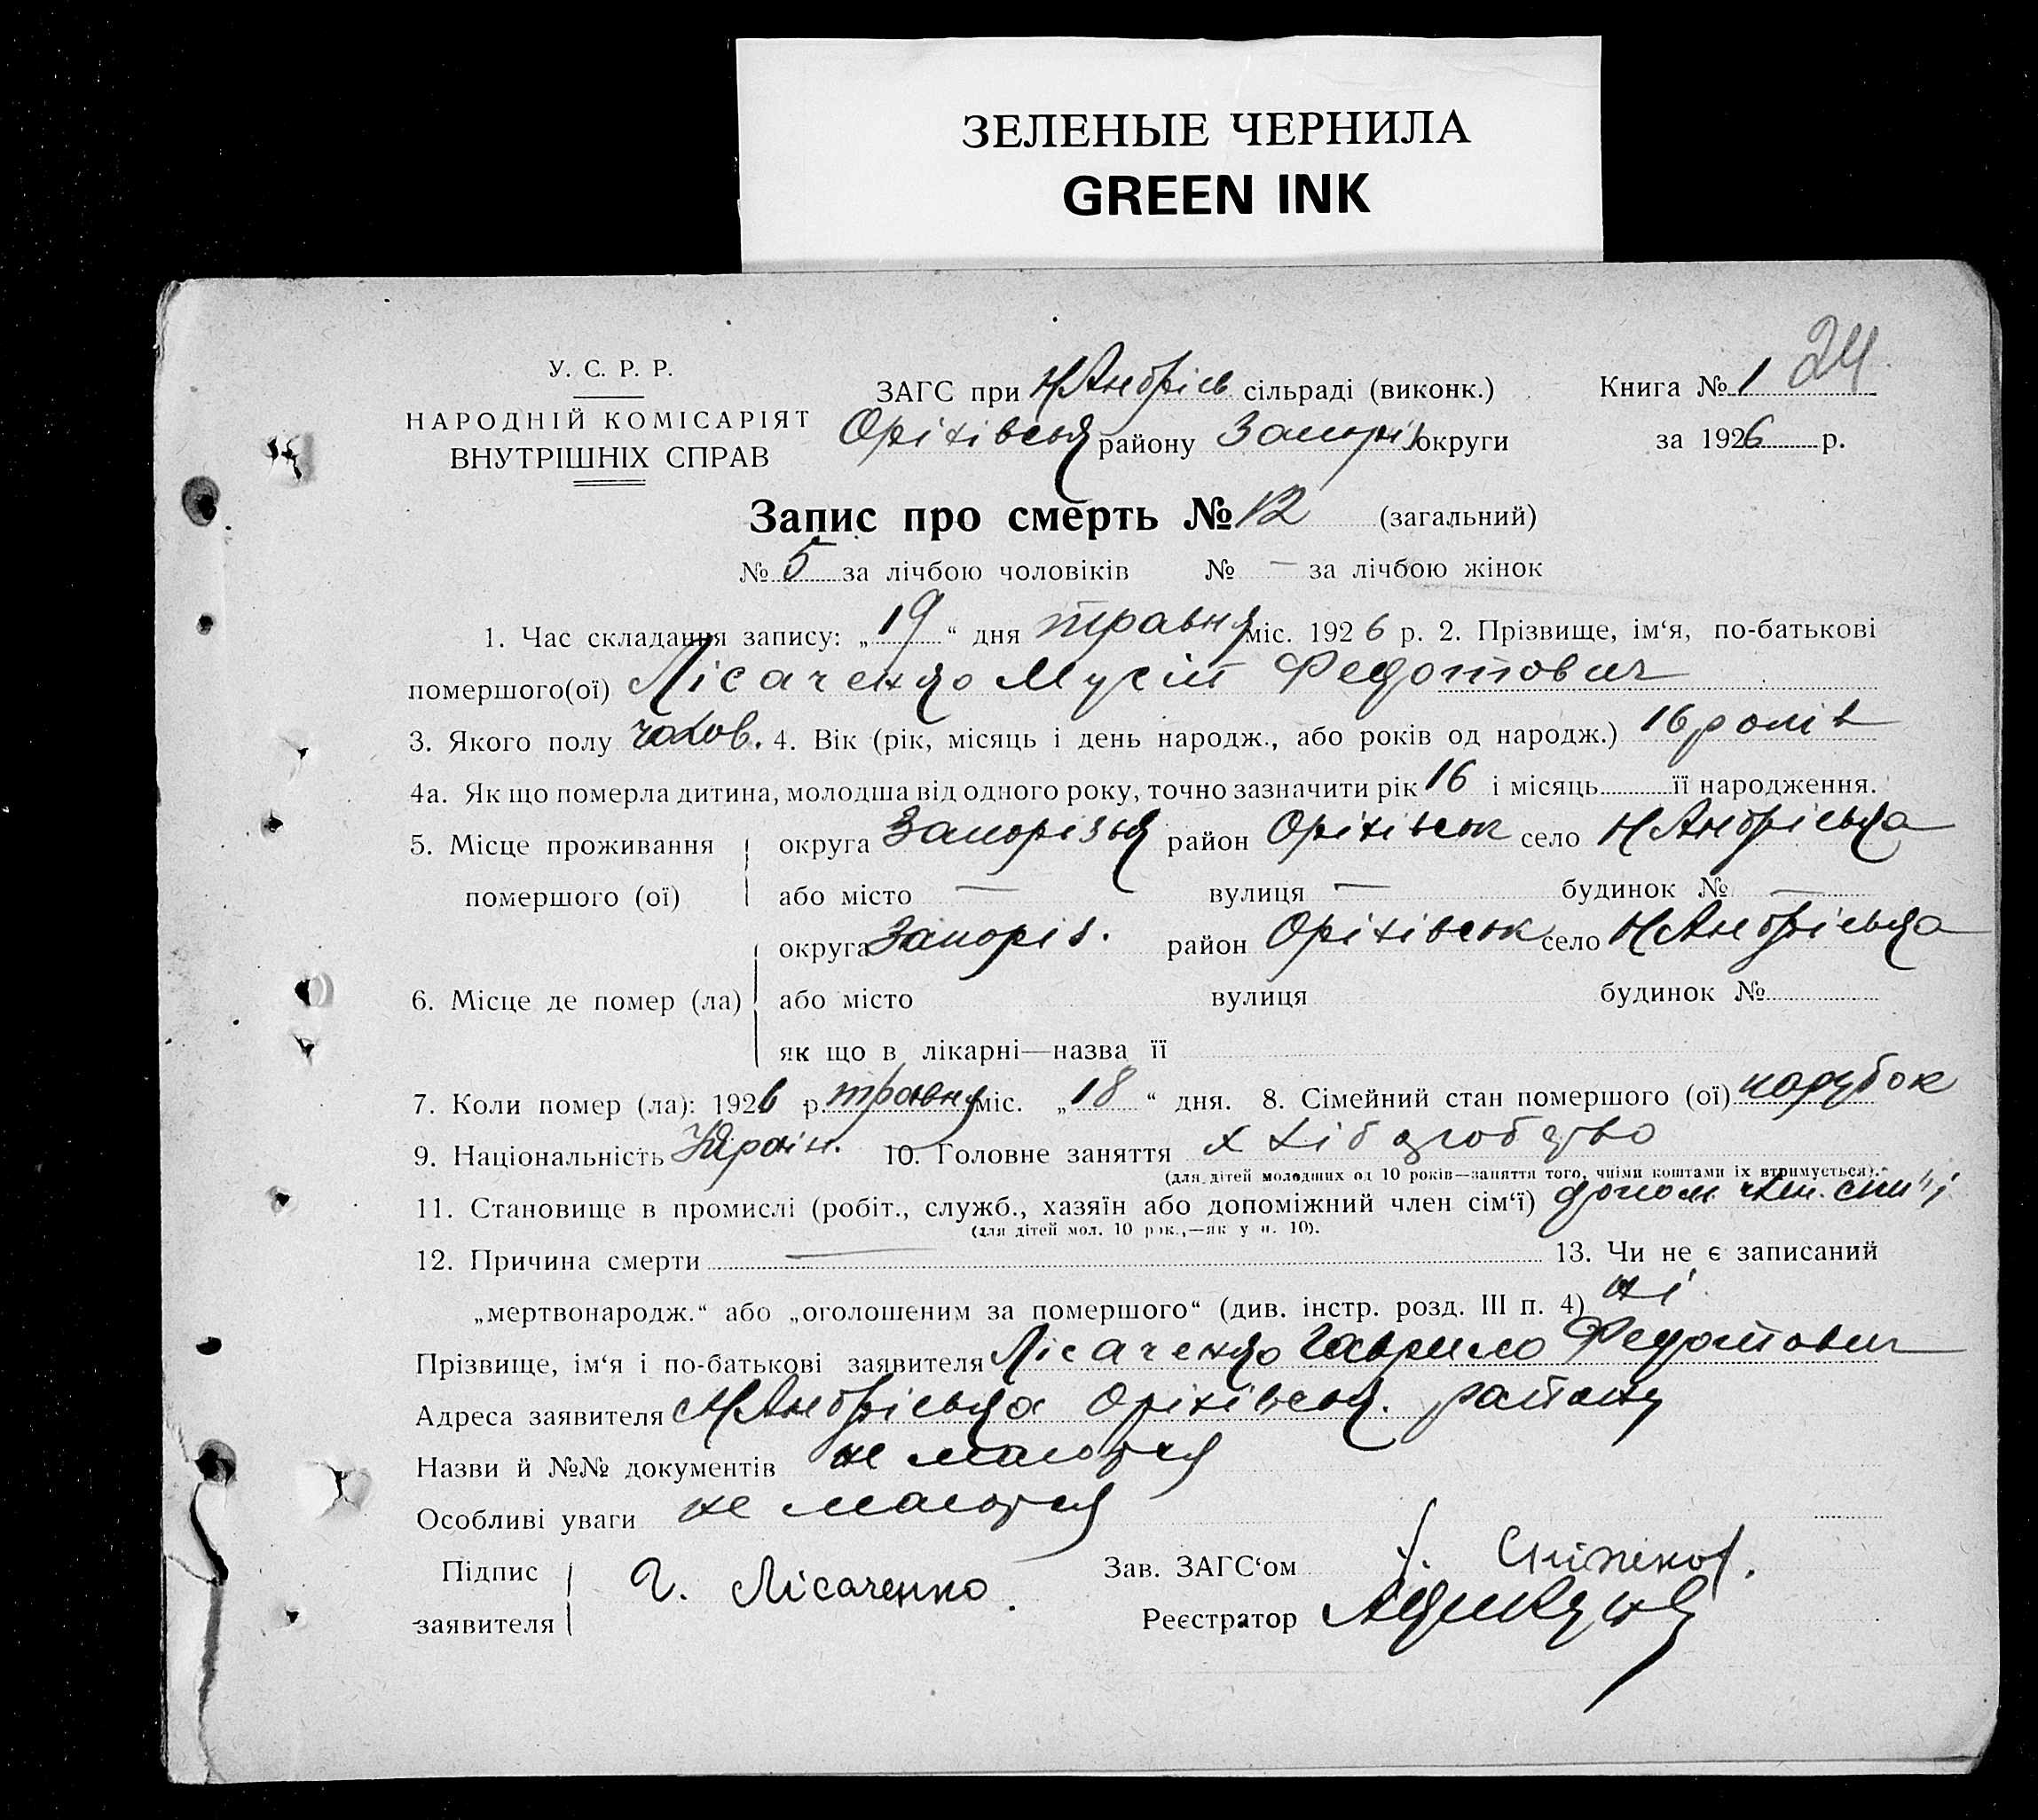 ЗЕЛЕНЫЕ ЧЕРНИЛА
GREEN INK
У. С. Р. Р.
НАРОДНІЙ КОМІСАРІЯТ
ВНУТРІШНІХ СПРАВ
ЗАГС при Н Андріев сільраді (виконк.)
Оріхівськ району Запоріз округи
Книга № 1 24
за 1926 р.
Запис про смерть № 12 (загальний)
№ 5 за лічбою чоловіків № — за лічбою жінок
1. Час складання запису: „19“ дня травня міс. 1926 р. 2. Прізвище, ім‘я, по-батькові
помершого(ої) Лісаченко Мусій Федотович
3. Якого полу чолов. 4. Вік (рік, місяць і день народж., або років од народж.) 16 років
4а. Як що померла дитина, молодша від одного року, точно зазначити рік 16 і місяць її народження.
5. Місце проживання округа Запорізьк район Оріхівськ село Н Андрієвка
помершого (ої) або місто — вулиця — будинок № —
округа Запоріз. район Оріхівськ село Н Андрієвка
6. Місце де помер (ла) або місто вулиця будинок №
як що в лікарні—назва її
7. Коли помер (ла): 1926 р. травня міс. „18“ дня. 8. Сімейний стан помершого (ої) парубок
9. Національність Україн. 10. Головне заняття хліборобство
(для дітей молодших од 10 років—заняття того, чиїми коштами їх втримується).
11. Становище в промислі (робіт., служб., хазяїн або допоміжний член сім‘ї) допом. член. сім'ї
(для дітей мол. 10 рок.,—як у п. 10).
12. Причина смерти — 13. Чи не є записаний
„мертвонародж.“ або „оголошеним за помершого“ (див. інстр. розд. III п. 4) ні
Прізвище, ім‘я і по-батькові заявителя Лісаченко Гаврило Федотович
Адреса заявителя Н Андрієвка Оріхівськ. району
Назви й №№ документів не маються
Особливі уваги не маються
Підпис
заявителя
Г. Лісаченко.
Зав. ЗАГС‘ом
Реєстратор